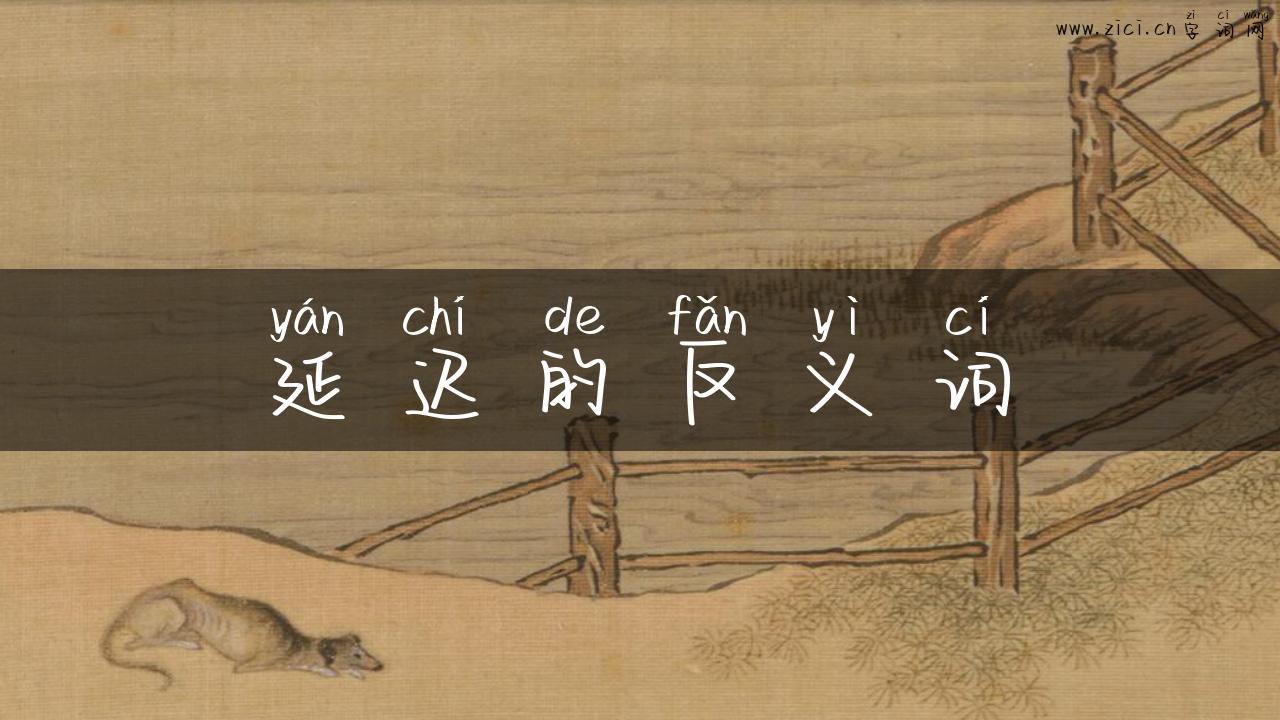 zì cí wǎng
www.zici.cn 字词网
yán chí de fǎn yì cí
延迟的反义词